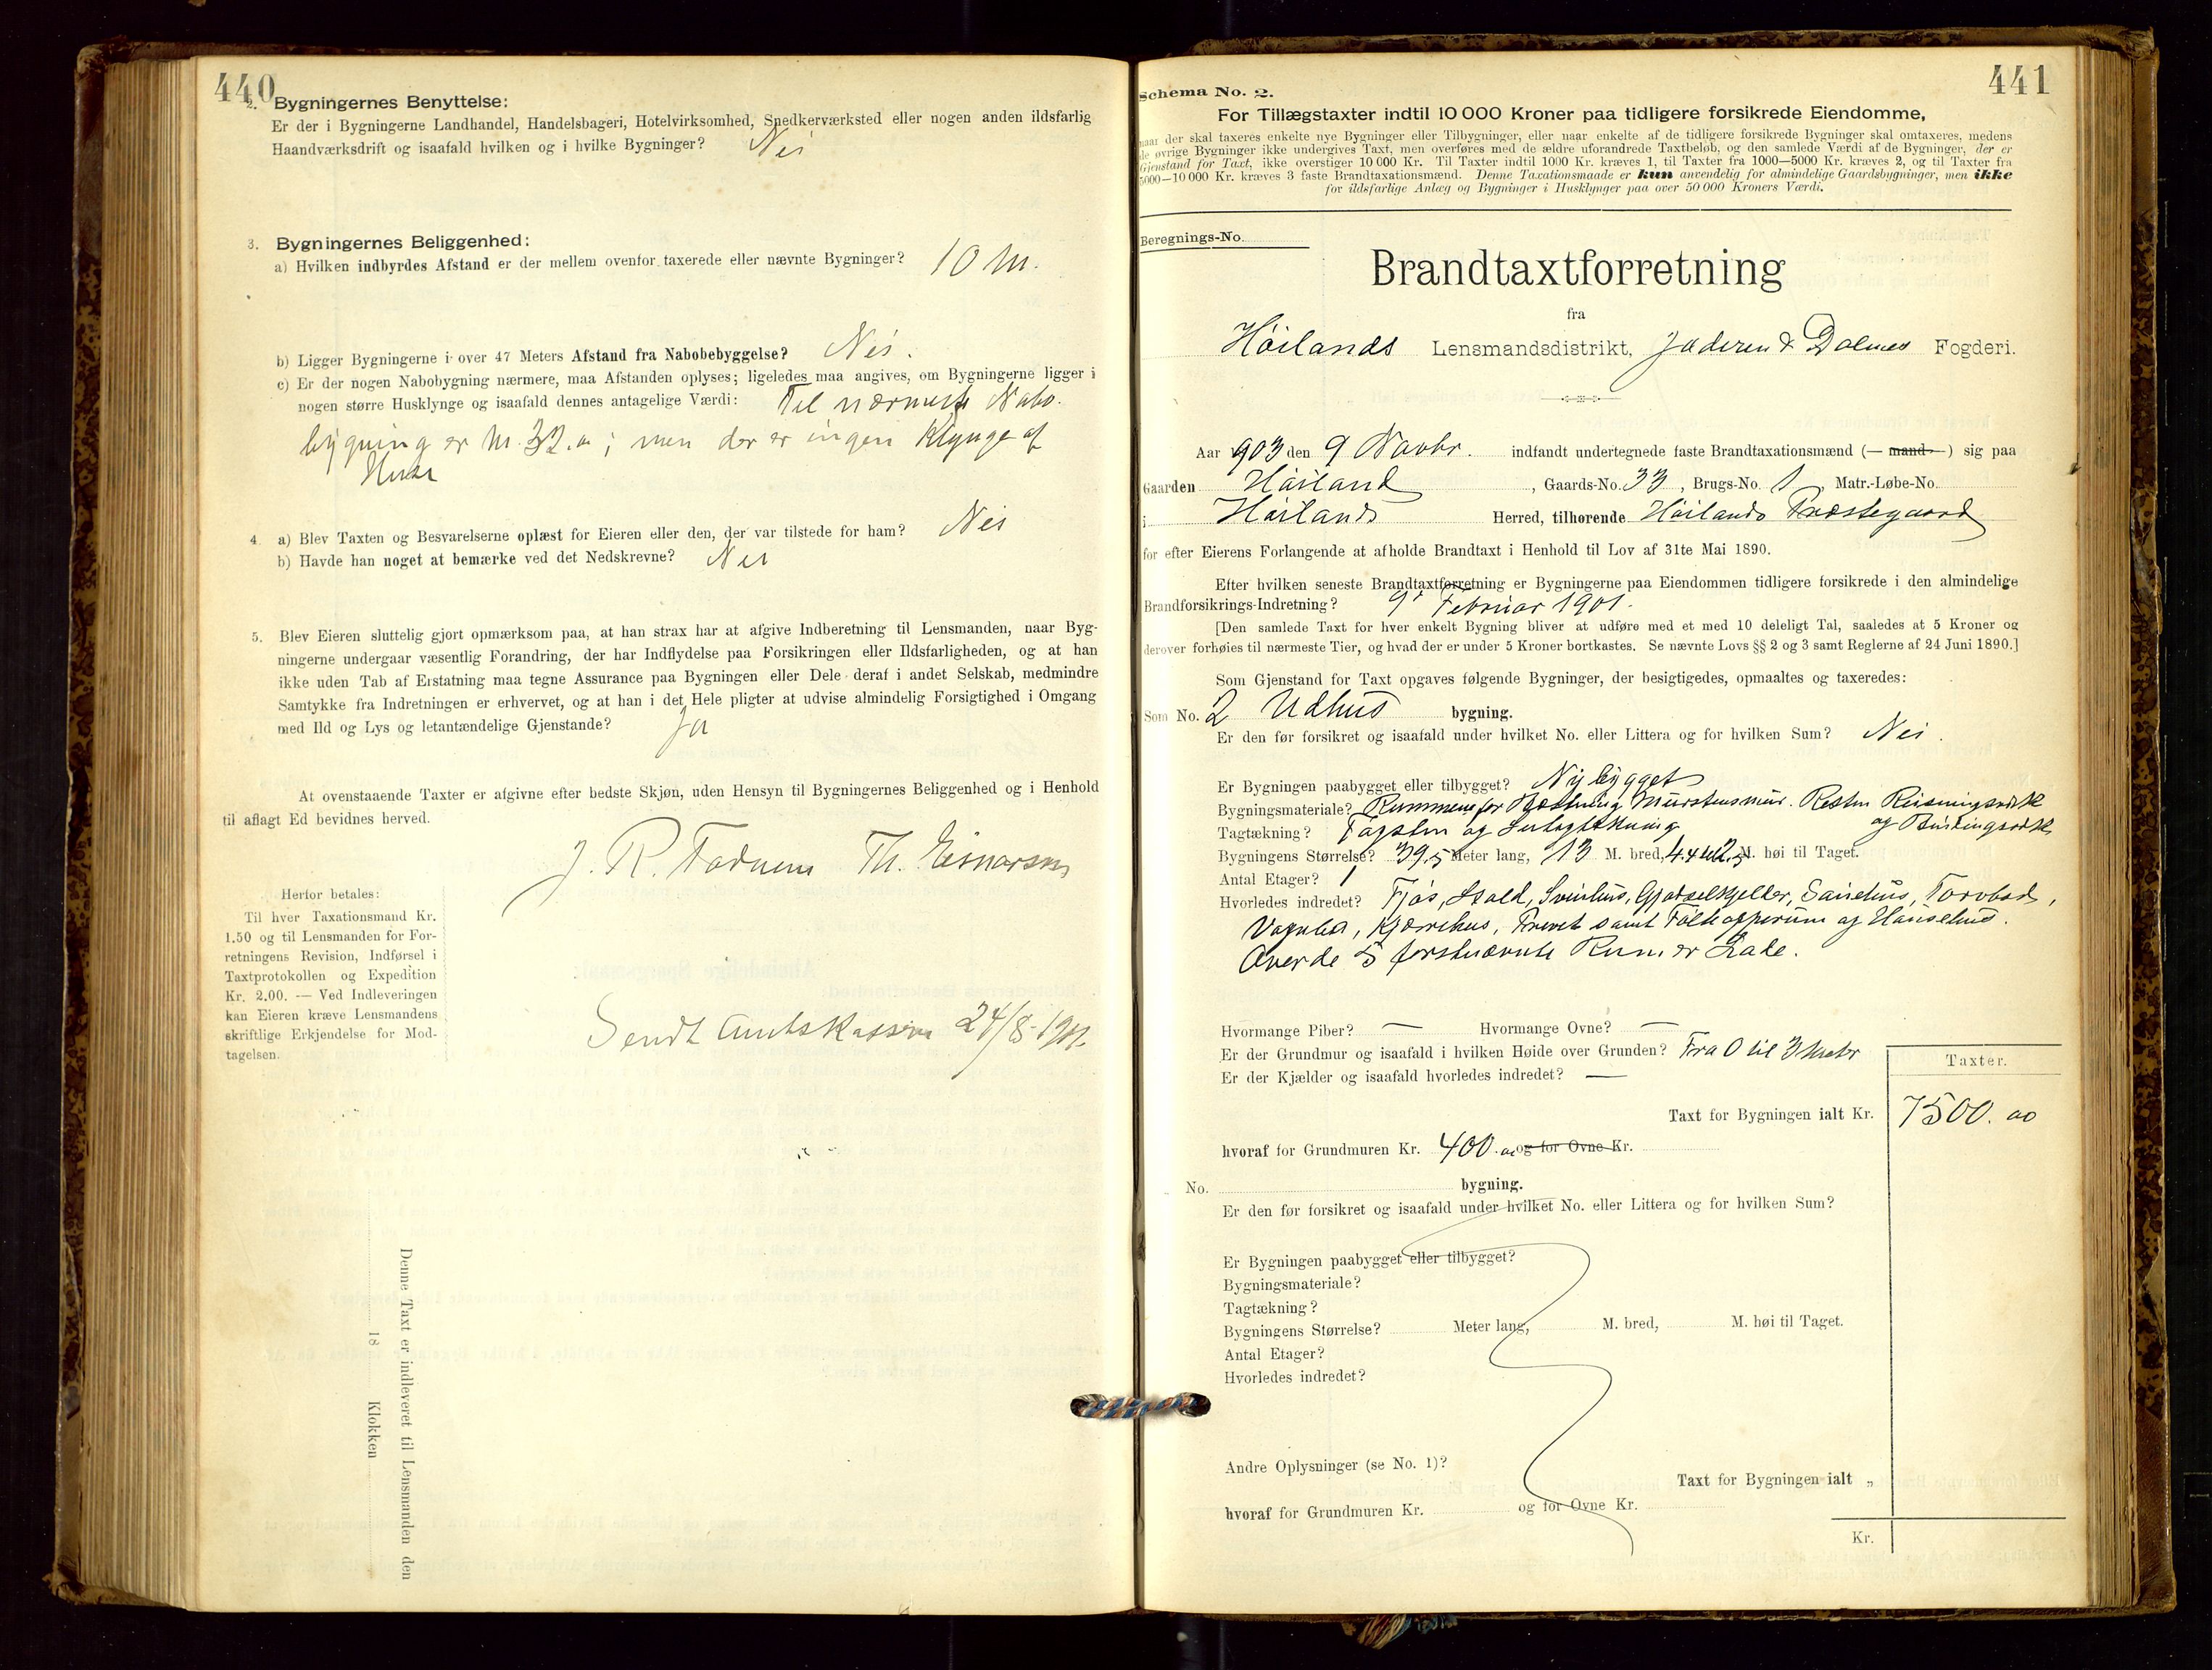 440
2. Bygningernes Benyttelse:
Er der i Bygningerne Landhandel, Handelsbageri, Hotelvirksomhed, Snedkerværksted eller nogen anden ildsfarlig
Haandværksdrift og isaafald hvilken og i hvilke Bygninger? Nei
3. Bygningernes Beliggenhed:
a) Hvilken indbyrdes Afstand er der mellem ovenfor taxerede eller nævnte Bygninger? 10 m.
b) Ligger Bygningerne i over 47 Meters Afstand fra Nabobebyggelse? Nei.
c) Er der nogen Nabobygning nærmere, maa Afstanden oplyses; ligeledes maa angives, om Bygningerne ligger i
nogen større Husklynge og isaafald dennes antagelige Værdi: Til nærmeste Nabo-
bygning er M. 32.; men der er ingen Klynge af
Huse
4. a) Blev Taxten og Besvarelserne oplæst for Eieren eller den, der var tilstede for ham? Nei
b) Havde han noget at bemærke ved det Nedskrevne? Nei
5. Blev Eieren sluttelig gjort opmærksom paa, at han strax har at afgive Indberetning til Lensmanden, naar Byg-
ningerne undergaar væsentlig Forandring, der har Indflydelse paa Forsikringen eller Ildsfarligheden, og at han
ikke uden Tab af Erstatning maa tegne Assurance paa Bygningen eller Dele deraf i andet Selskab, medmindre
Samtykke fra Indretningen er erhvervet, og at han i det Hele pligter at udvise almindelig Forsigtighed i Omgang
med Ild og Lys og letantændelige Gjenstande? Ja
At ovenstaaende Taxter er afgivne efter bedste Skjøn, uden Hensyn til Bygningernes Beliggenhed og i Henhold
til aflagt Ed bevidnes herved.
J. R. Fodnem Th. Eisnarsen
Herfor betales:
Til hver Taxationsmand Kr.
1.50 og til Lensmanden for For-
retningens Revision, Indførsel i
Taxtprotokollen og Expedition
Kr. 2.00. — Ved Indleveringen
kan Eieren kræve Lensmandens
skriftlige Erkjendelse for Mod-
tagelsen.
Sendt Amtskassen 24/8-1911.
Denne Taxt er indleveret til Lensmanden den
18 Klokken
441
Schema No. 2.
For Tillægstaxter indtil 10 000 Kroner paa tidligere forsikrede Eiendomme,
naar der skal taxeres enkelte nye Bygninger eller Tilbygninger, eller naar enkelte af de tidligere forsikrede Bygninger skal omtaxeres, medens
de øvrige Bygninger ikke undergives Taxt, men overføres med de ældre uforandrede Taxtbeløb, og den samlede Værdi af de Bygninger, der er
Gjenstand for Taxt, ikke overstiger 10 000 Kr. Til Taxter indtil 1000 Kr. kræves 1, til Taxter fra 1000—5000 Kr. kræves 2, og til Taxter fra
5000—10 000 Kr. kræves 3 faste Brandtaxationsmænd. Denne Taxationsmaade er kun anvendelig for almindelige Gaardsbygninger, men ikke
for ildsfarlige Anlæg og Bygninger i Husklynger paa over 50 000 Kroners Værdi.
Beregnings-No.
Brandtaxtforretning
fra
Høilands Lensmandsdistrikt, Jæderen & Dalenes Fogderi.
Aar 1903 den 9 Novbr. indfandt undertegnede faste Brandtaxationsmænd (— mand —) sig paa
Gaarden Høiland, Gaards-No. 33, Brugs-No. 1, Matr.-Løbe-No.
i Høilands Herred, tilhørende Høilands Præstegaard
for efter Eierens Forlangende at afholde Brandtaxt i Henhold til Lov af 31te Mai 1890.
Efter hvilken seneste Brandtaxtforretning er Bygningerne paa Eiendommen tidligere forsikrede i den almindelige
Brandforsikrings-Indretning? 9' Februar 1901.
[Den samlede Taxt for hver enkelt Bygning bliver at udføre med et med 10 deleligt Tal, saaledes at 5 Kroner og
derover forhøies til nærmeste Tier, og hvad der er under 5 Kroner bortkastes. Se nævnte Lovs §§ 2 og 3 samt Reglerne af 24 Juni 1890.]
Som Gjenstand for Taxt opgaves følgende Bygninger, der besigtigedes, opmaaltes og taxeredes:
Som No. 2 Udhus bygning.
Er den før forsikret og isaafald under hvilket No. eller Littera og for hvilken Sum? Nei.
Er Bygningen paabygget eller tilbygget? Nybygget
Bygningsmateriale? Rummene for Murstensmur. Resten Reisningsværk
Tagtækning? Tagsten og og Bindingsværk
Bygningens Størrelse? 39,5 Meter lang, 13 M. bred, 4.4 til 2,5 M. høi til Taget.
Antal Etager? 1
Hvorledes indredet? Fjøs, Stald, Svinhus, Gjødselskjelder, Sauehus, Torvbod,
Vognbod, Kjærrehus, Privet samt og Hønsehus.
Over de 5 førstnævnte Rum er Lade.
Hvormange Piber? — Hvormange Ovne? —
Er der Grundmur og isaafald i hvilken Høide over Grunden? Fra 0 til 3 meter
Er der Kjælder og isaafald hvorledes indredet? —
Taxter.
Taxt for Bygningen ialt Kr. 7500. 00
hvoraf for Grundmuren Kr. 400.00 og for Ovne Kr.
No. bygning.
Er den før forsikret og isaafald under hvilket No. eller Littera og for hvilken Sum?
Er Bygningen paabygget eller tilbygget?
Bygningsmateriale?
Tagtækning?
Bygningens Størrelse? Meter lang, M. bred, M. høi til Taget.
Antal Etager?
Hvorledes indredet?
Andre Oplysninger (se No. 1)?
Taxt for Bygningen ialt „
hvoraf for Grundmuren Kr. og for Ovne Kr.
Kr.